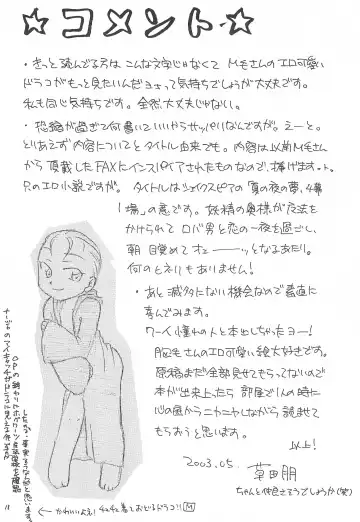 ☆コメント☆
・きっと読んでる方は こんな文字じゃなくて Mもさんのエロ可愛い
ドラコがもっと見たいんだヨォって気持ちでしょうが大丈夫です。
私も同じ気持ちです。全然大丈夫じゃない。
・恐縮が過ぎて何書いていいやらサッパリなんですが。えーと。
とりあえず内容についてとタイトル由来でも。内容は以前Mもさん
から頂戴したFAXにインスパイアされたものなので、捧げます。
エロ小説ですが。タイトルはシェイクスピアの「夏の夜の夢、4幕
1場」の意です。妖精の奥様が魔法を
かけられて ロバ男と恋の一夜を過ごし、
朝 目覚めて オェーーッとなるあたり。
何のヒネリもありません!
・あと滅多にない機会なので素直に
喜んでみます。
ワーイ憧れの人と本出しちゃったヨー!
胸もさんのエロ可愛い絵大好きです。
原稿まだ全部見せてもらってないので
本が出来上ったら 部屋で1人の時に
心の底からニヤニヤしながら読ませて
もらおうと思います。
以上!
2003.05. 草田朋
ちゃんと仲良さそうでしょうか(笑)
かわいいよ!
M